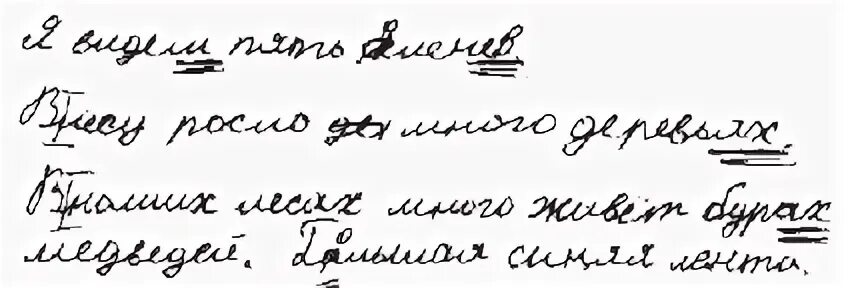 Я видем пять оленев
В лесу росло много деревьях.
В наших лесах много живёт бурах
медведей. Большая синяя лента.